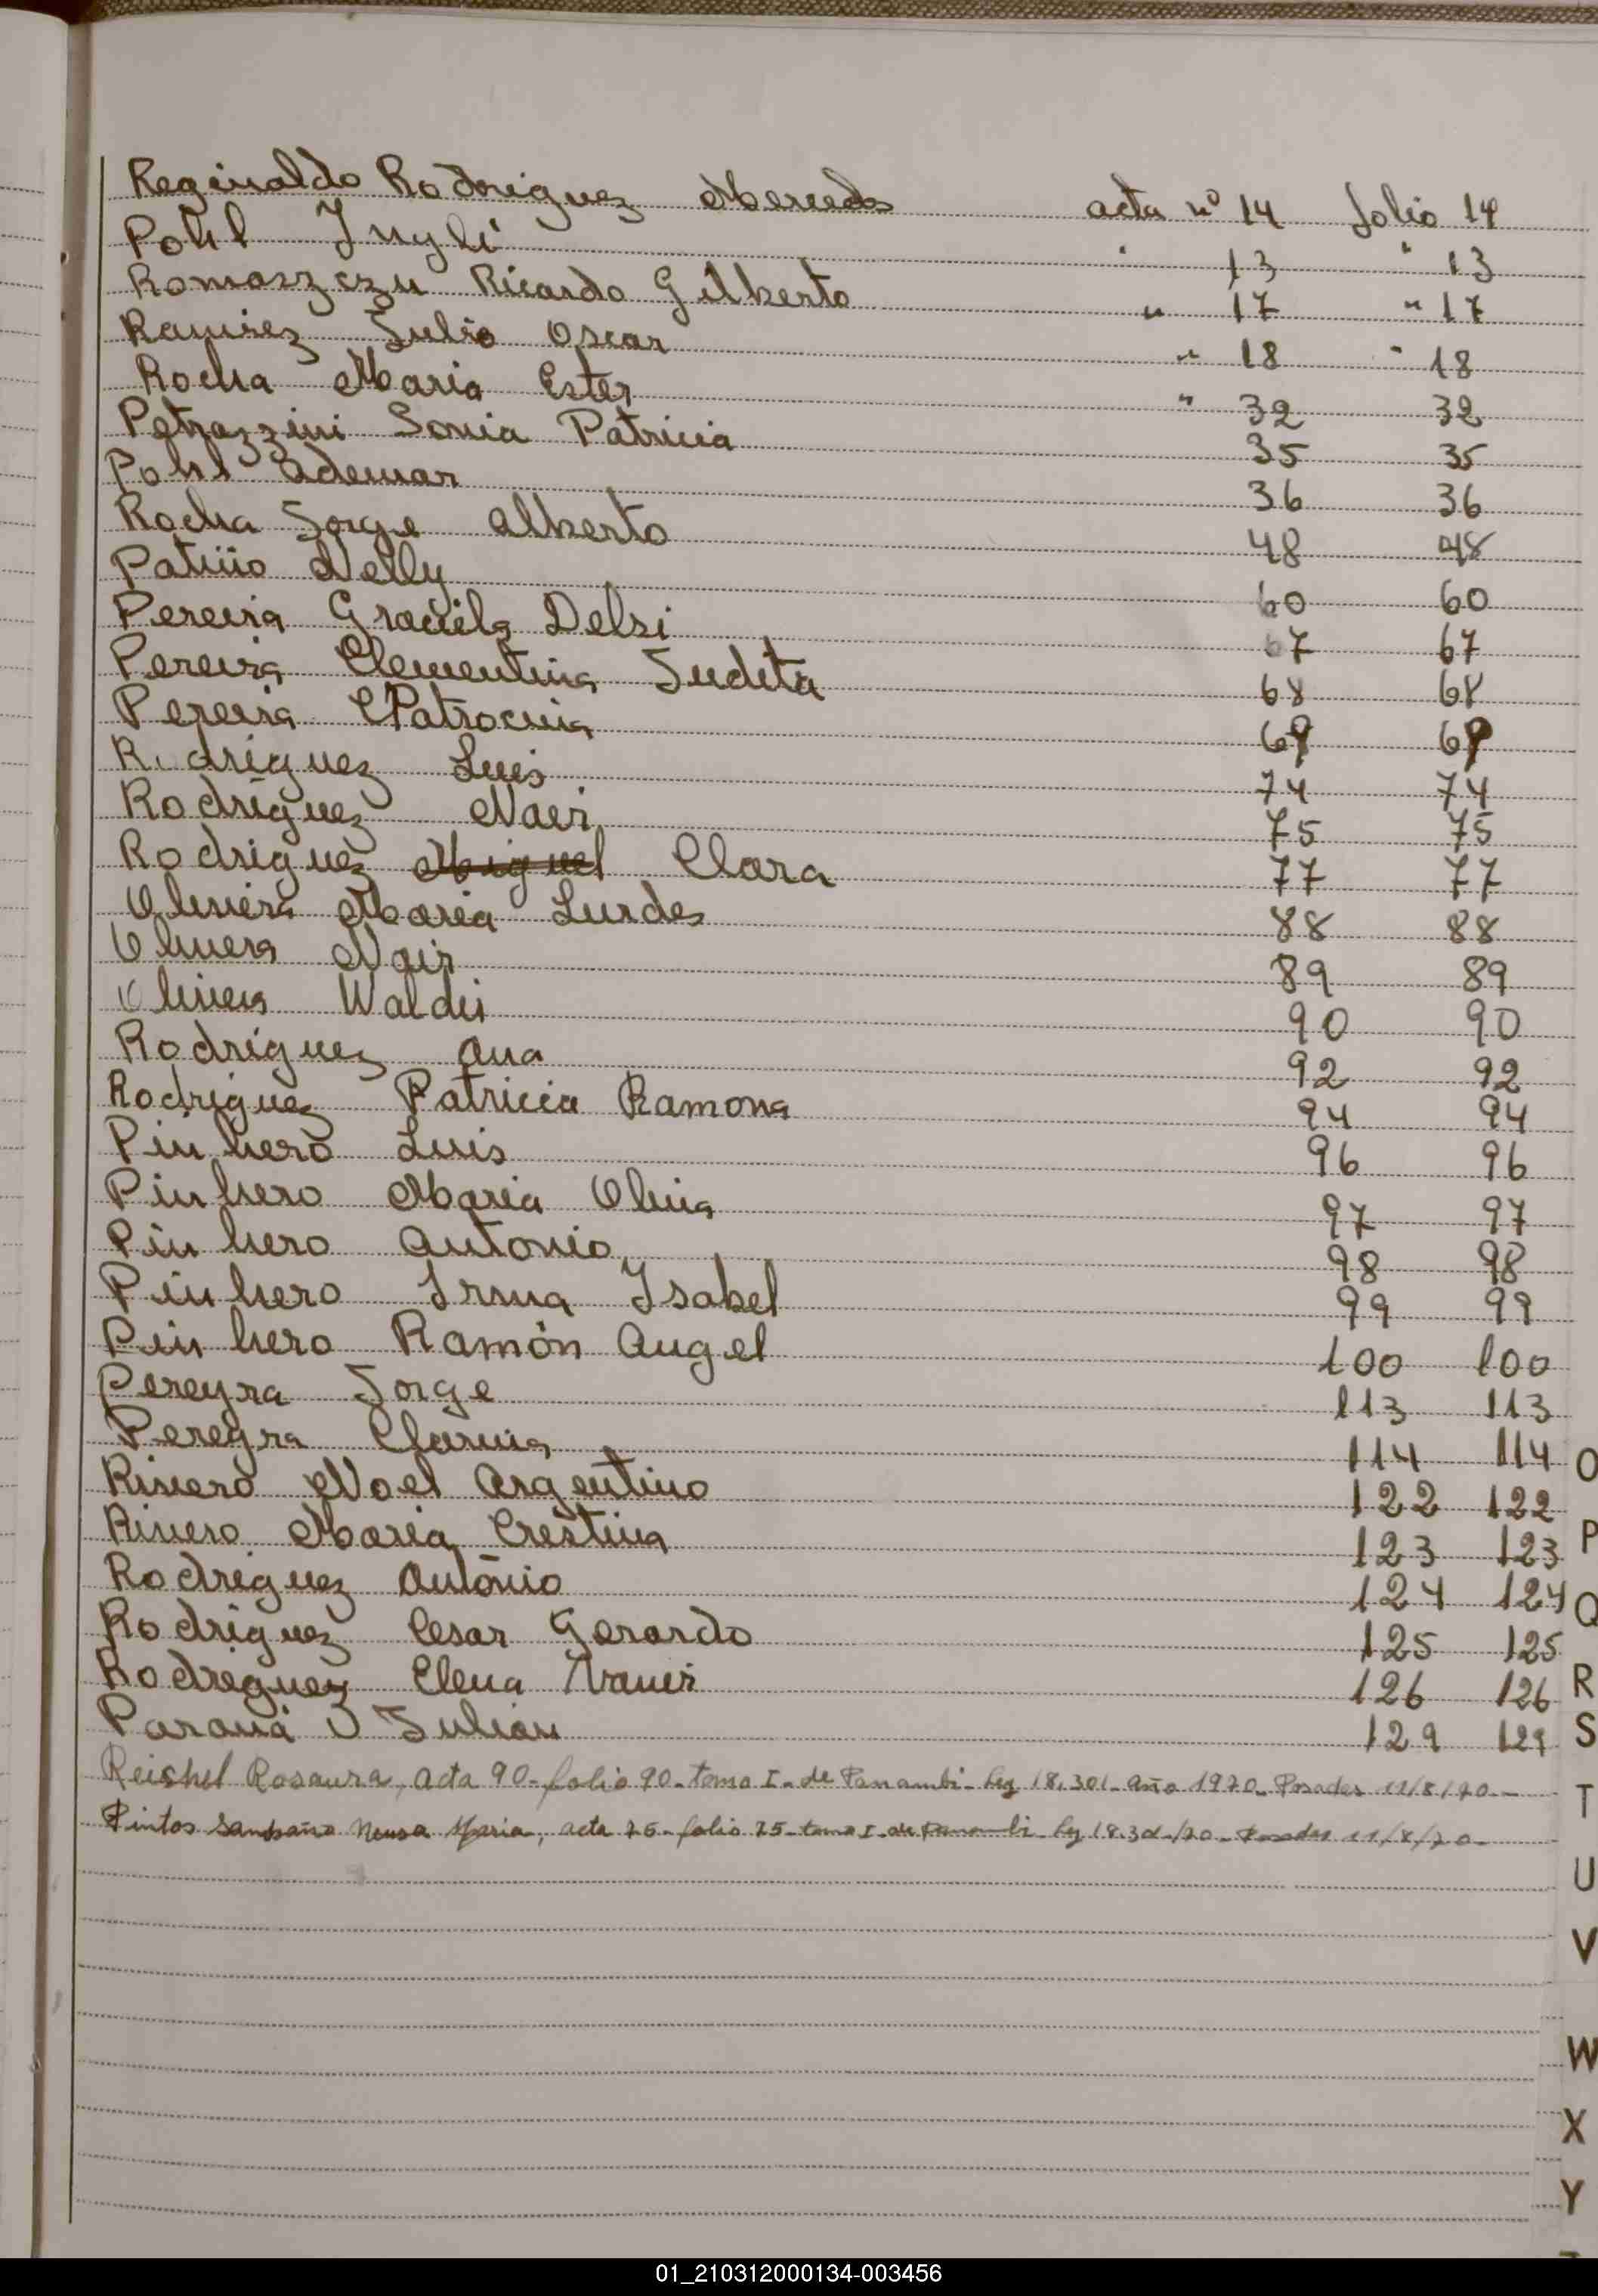 Reginaldo Rodriguez Mercedes acta nº 14 folio 14
Pohl Yngli " 13 " 13
Romaszczu Ricardo Gilberto " 17 " 17
Ramirez Julio Oscar " 18 " 18
Rocha Maria Ester " 32 32
Petrazzini Sonia Patricia 35 35
Pohl Ademar 36 36
Rocha Jorge Alberto 48 48
Patiño Nelly 60 60
Pereira Graciela Delsi 67 67
Pereira Clementina Judita 68 68
Pereira Patrocinia 69 69
Rodriguez Luis 74 74
Rodriguez Nair 75 75
Rodriguez Miguel Clara 77 77
Olivera Maria Lurdes 88 88
Olivera Nair 89 89
Olivera Waldir 90 90
Rodriguez Ana 92 92
Rodriguez Patricia Ramona 94 94
Pinhero Luis 96 96
Pinhero Maria Olivia 97 97
Pinhero Antonio 98 98
Pinhero Irma Ysabel 99 99
Pinhero Ramón Angel 100 100
Pereyra Jorge 113 113
Pereyra Clarinia 114 114
Rivero Noel Argentino 122 122
Rivero Maria Cristina 123 123
Rodriguez Antonio 124 124
Rodriguez Cesar Gerardo 125 125
Rodriguez Elena 126 126
Paraná Julian 129 129
Reichel Rosaura, acta 90-folio 90-tomo I-de Panambi-ley 18.301-año 1970-Posadas 11/8/70.-
Pintos Neusa Maria, acta 75-folio 75-tomo I-de Panambi-ley 18.301-/70-Posadas 11/8/70-
O
P
Q
R
S
T
U
V
W
X
Y
01_210312000134-003456